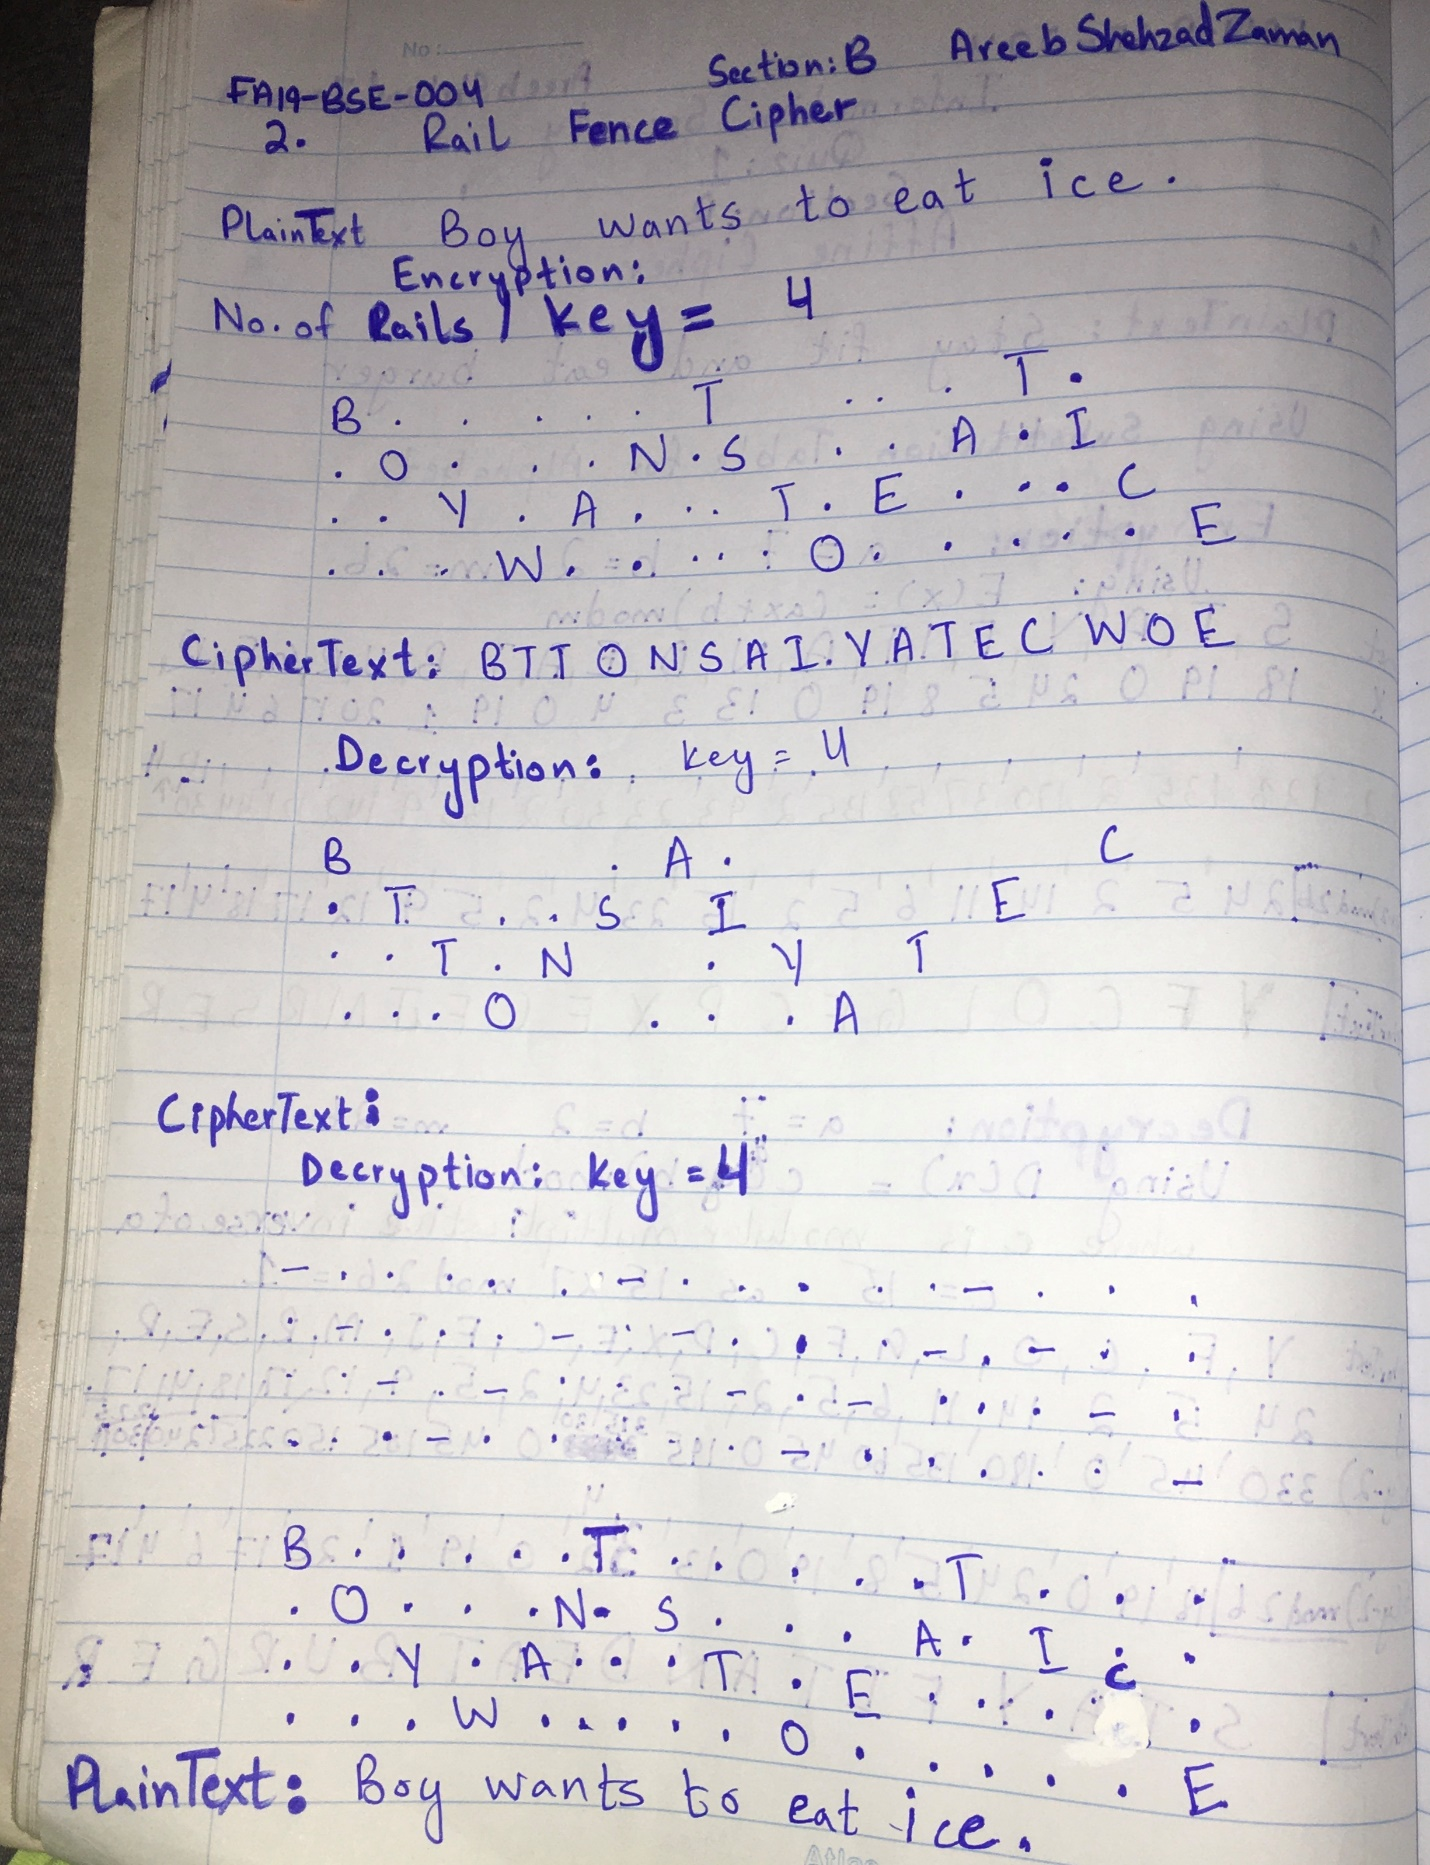 No:
FA19-BSE-004 Section: B Areeb Shehzad Zaman
2. Rail Fence Cipher
PlainText Boy wants to eat ice.
Encryption:
No. of Rails / key = 4
B . . . . . T . . . T .
. O . . . N . S . . A . I
. . Y . A . . . T . E . . . . C
. . . W . . . . . O . . . . . E
CipherText: BTTONSAIYATECWOE
Decryption: key = 4
B . A . C
. T . . . S I E
. . T . N . Y T
. . . O . . . A
CipherText:
Decryption: key = 4
– . . . . . – . . . . . – . . .
. – . . . – . – . . . – . – . .
. . – . – . . . – . – . . . – .
. . . – . . . . . – . . . . . –
B . . . . . T . . . . . T . . .
. O . . . N . S . . . A . I . .
. . Y . A . . . T . E . . . C .
. . . W . . . . . O . . . . . E
PlainText: Boy wants to eat ice.